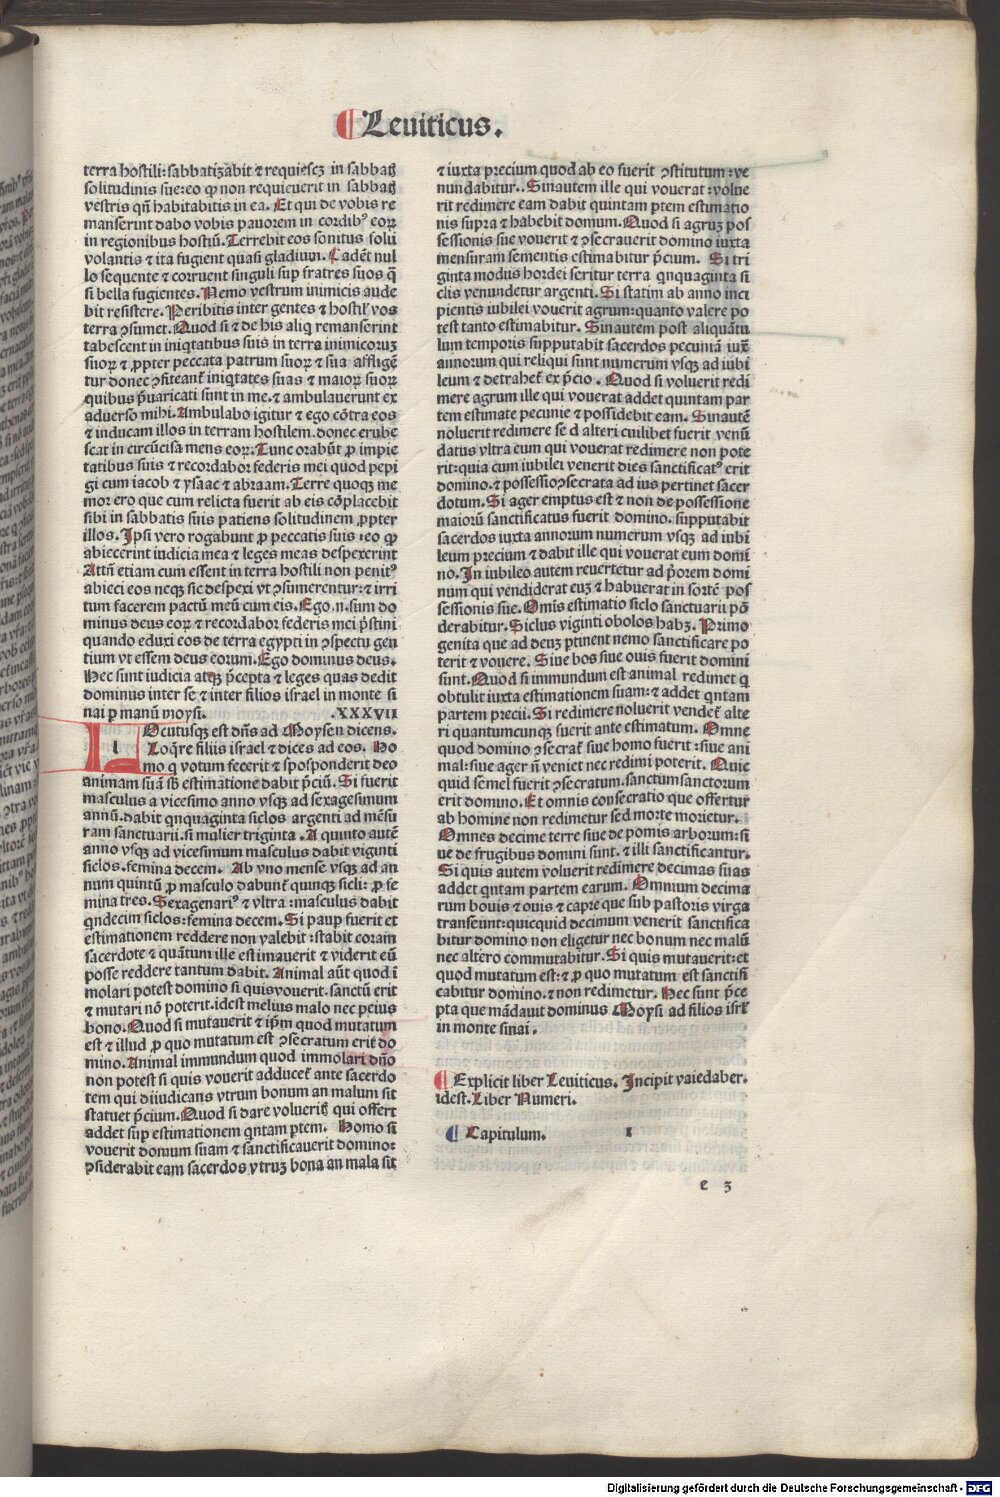 ¶ Leuiticus.
terra hostili: sabbatizabit ⁊ requiescꝫ in sabbaꝭ
solitudinis sue: eo ꝙ non requieuerit in sabbaꝭ
vestris qn̄ habitabitis in ea. Et qui de vobis re
manserint dabo vobis pauorem in cordibꝰ eoꝝ
in regionibus hostiū. Terrebit eos sonitus folii
volantis ⁊ ita fugient quasi gladium. Cadēt nul
lo sequente ⁊ corruent singuli sup fratres suos q̄
si bella fugientes. Nemo vestrum inimicis aude
bit resistere. Peribitis inter gentes ⁊ hostiƚ vos
terra ꝯsumet. Quod si ⁊ de his aliq̇ remanserint
tabescent in iniq̇tatibus suis in terra inimicoruꝫ
suoꝝ ⁊ ꝓpter peccata patrum suoꝝ ⁊ sua affligē
tur donec ꝯfiteant᷑ iniq̇tates suas ⁊ maioꝝ suoꝝ
quibus p̄uaricati sunt in me. ⁊ ambulauerunt ex
aduerso mihi. Ambulabo igitur ⁊ ego cōtra eos
⁊ inducam illos in terram hostilem. donec erube
scat in circūcisa mens eoꝝ. Tunc orabūt ꝓ impie
tatibus suis ⁊ recordabor federis mei quod pepi
gi cum iacob ⁊ ysaac ⁊ abraam. Terre quoqꝫ me
mor ero que cum relicta fuerit ab eis cōplacebit
sibi in sabbatis suis patiens solitudinem ꝓpter
illos. Ipsi vero rogabunt ꝓ peccatis suis: eo ꝙ
abiecerint iudicia mea ⁊ leges meas despexerint
Attn̄ etiam cum essent in terra hostili non penitꝰ
abieci eos neqꝫ sic despexi vt ꝯsumerentur: ⁊ irri
tum facerem pactū meū cum eis. Ego .n. sum do
minus deus eoꝝ ⁊ recordabor federis mei p̄stini
quando eduxi eos de terra egypti in ꝯspectu gen
tium vt essem deus eorum. Ego dominus deus.
Hec sunt iudicia atqꝫ p̄cepta ⁊ leges quas dedit
dominus inter se ⁊ inter filios israel in monte si
nai p manū moysi. .XXXVII
Locutusqꝫ est dn̄s ad Moysen dicens.
Loq̄re filiis israel ⁊ dices ad eos. Ho
mo q̇ votum fecerit ⁊ sposponderit deo
animam suā sb̄ estimatione dabit p̄ciū. Si fuerit
masculus a vicesimo anno vsqꝫ ad sexagesimum
annū. dabit qnquaginta siclos argenti ad mēsu
ram sanctuarii. si mulier triginta. A quinto autē
anno vsqꝫ ad vicesimum masculus dabit viginti
siclos. femina decem. Ab vno mense vsqꝫ ad an
num quintū ꝓ masculo dabunt᷑ quinqꝫ sicli: ꝓ fe
mina tres. Sexagenariꝰ ⁊ vltra: masculus dabit
qndecim siclos: femina decem. Si paup fuerit et
estimationem reddere non valebit: stabit coram
sacerdote ⁊ quātum ille estimauerit ⁊ viderit eū
posse reddere tantum dabit. Animal aūt quod ī
molari potest domino si quis vouerit. sanctū erit
⁊ mutari nō poterit. idest melius malo nec peius
bono. Quod si mutauerit ⁊ ip̄m quod mutatum
est ⁊ illud ꝓ quo mutatum est ꝯsecratum erit do
mino. Animal immundum quod immolari dn̄o
non potest si quis vouerit adducet᷑ ante sacerdo
tem qui diiudicans vtrum bonum an malum sit
statuet p̄cium. Quod si dare volueriꝭ qui offert
addet sup estimationem qntam ptem. Homo si
vouerit domum suam ⁊ sanctificauerit domino:
ꝯsiderabit eam sacerdos vtruꝫ bona an mala sit
⁊ iuxta precium quod ab eo fuerit ꝯstitutum: ve
nundabitur.. Sinautem ille qui vouerat: volue
rit redimere eam dabit quintam ptem estimatio
nis supra ⁊ habebit domum. Quod si agruꝫ pos
sessionis sue vouerit ⁊ ꝯsecrauerit domino iuxta
mensuram sementis estimabitur p̄cium. Si tri
ginta modiis hordei seritur terra qnquaginta si
clis venundetur argenti. Si statim ab anno inci
pientis iubilei vouerit agrum: quanto valere po
test tanto estimabitur. Sinautem post aliquātu
lum temporis supputabit sacerdos pecuniā iux̄
annorum qui reliqui sunt numerum vsqꝫ ad iubi
leum ⁊ detrahet᷑ ex p̄cio. Quod si voluerit redi
mere agrum ille qui vouerat addet quintam par
tem estimate pecunie ⁊ possidebit eam. Sinautē
noluerit redimere se d alteri cuilibet fuerit venū
datus vltra eum qui vouerat redimere non pote
rit: quia cum iubilei venerit dies sanctificatꝰ erit
domino. ⁊ possessio ꝯsecrata ad ius pertinet sacer
dotum. Si ager emptus est ⁊ non de possessione
maiorū sanctificatus fuerit domino. supputabit
sacerdos iuxta annorum numerum vsqꝫ ad iubi
leum precium ⁊ dabit ille qui vouerat eum domi
no. In iubileo autem reuertetur ad p̄orem domi
num qui vendiderat euꝫ ⁊ habuerat in sortē pos
sessionis sue. Omīs estimatio siclo sanctuarii pō
derabitur. Siclus viginti obolos habꝫ. Primo
genita que ad deuꝫ ptinent nemo sanctificare po
terit ⁊ vouere. Siue bos siue ouis fuerit domini
sunt. Quod si immundum est animal redimet q̇
obtulit iuxta estimationem suam: ⁊ addet qntam
partem precii. Si redimere noluerit vendet᷑ alte
ri quantumcunqꝫ fuerit ante estimatum. Omne
quod domino ꝯsecrat᷑ siue homo fuerit: siue ani
mal: siue ager n̄ veniet nec redimi poterit. Quic
quid semel fuerit ꝯsecratum. sanctum sanctorum
erit domino. Et omnis consecratio que offertur
ab homine non redimetur sed morte morietur.
Omnes decime terre siue de pomis arborum: si
ue de frugibus domini sunt. ⁊ illi sanctificantur.
Si quis autem voluerit redimere decimas suas
addet qntam partem earum. Omnium decima
rum bouis ⁊ ouis ⁊ capre que sub pastoris virga
transeūnt: quicquid decimum venerit sanctifica
bitur domino non eligetur nec bonum nec malū
nec altero commutabitur. Si quis mutauerit: et
quod mutatum est: ⁊ ꝓ quo mutatum est sanctifi
cabitur domino. ⁊ non redimetur. Hec sunt p̄ce
pta que mādauit dominus Moysi ad filios isrl̄
in monte sinai.
¶ Explicit liber Leuiticus. Incipit vaiedaber.
idest. Liber Numeri.
¶ Capitulum. I
e 3
Digitalisierung gefördert durch die Deutsche Forschungsgemeinschaft - DFG